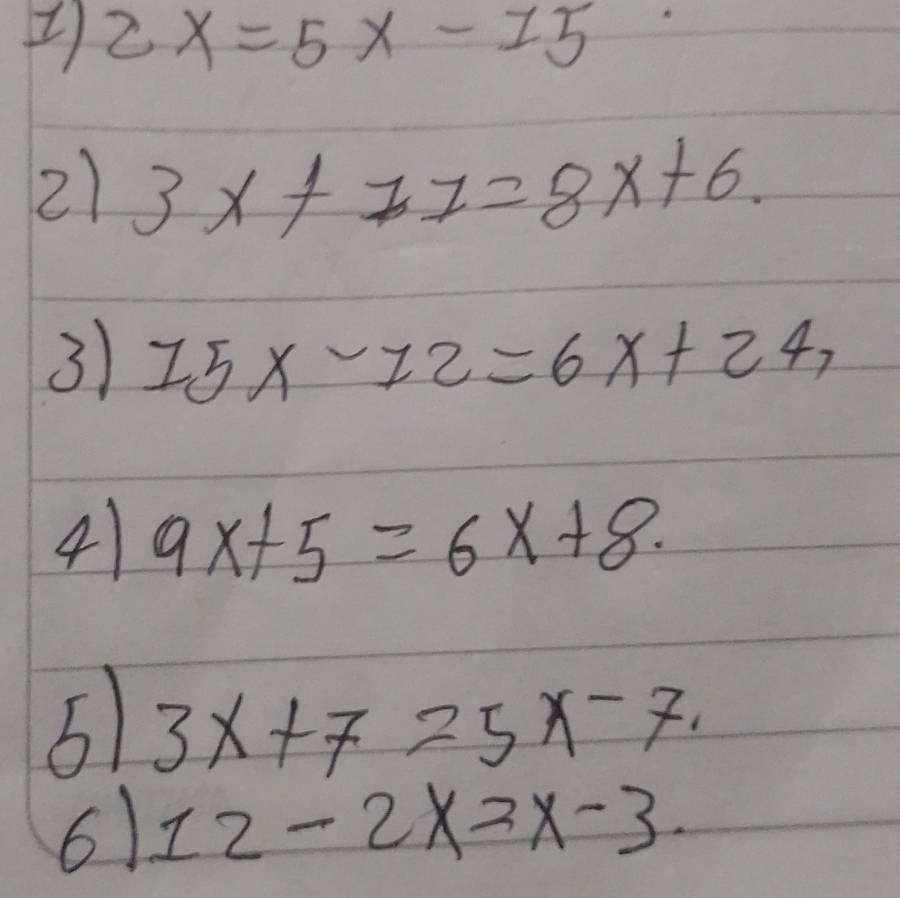 1) 2x = 5x - 15
2) 3x + 11 = 8x + 6.
3) 15x - 12 = 6x + 24,
4) 9x + 5 = 6x + 8.
5) 3x + 7 = 5x - 7.
6) 12 - 2x = x - 3.